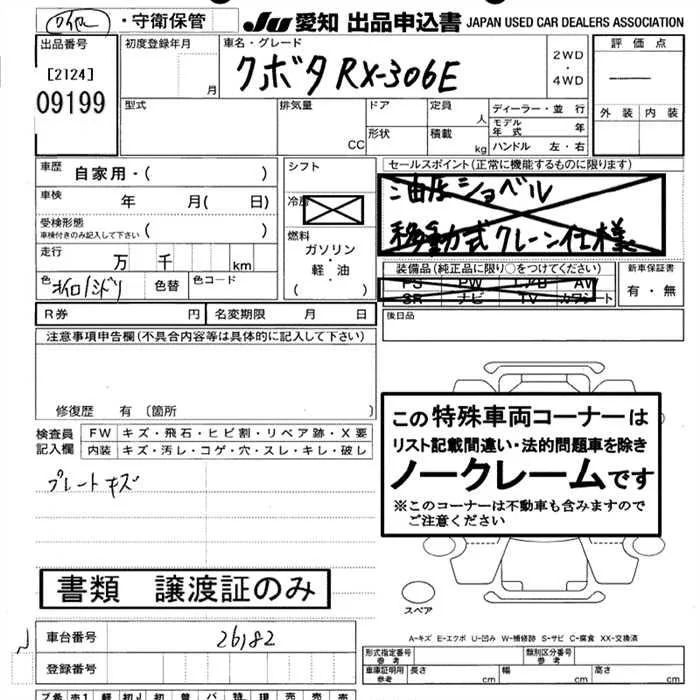 ・守衛保管 JU 愛知 出品申込書 JAPAN USED CAR DEALERS ASSOCIATION
出品番号 初度登録年月 車名・グレード 評価点
[2124] 月 クボタ RX-306E 2WD・4WD
09199
型式 排気量 ドア 定員 ディーラー・並行 外装 内装
人 モデル年式 年
CC 形状 積載 kg ハンドル 左・右
車歴 自家用・( ) シフト セールスポイント(正常に機能するものに限ります)
車検 年 月( 日) 冷房 油圧ショベル
受検形態 車検付きのみ記入して下さい ( ) 燃料 移動式クレーン仕様
走行 万 千 km ガソリン・軽・油 ( ) 装備品(純正品に限り○をつけてください) 新車保証書
色 オイロ/ミドリ 色替 色コード PS PW エアB AW 有・無
SR ナビ TV カワシート
R券 円 名変期限 月 日 後日品
注意事項申告欄(不具合内容等は具体的に記入して下さい)
修復歴 有 〔箇所 〕
この特殊車両コーナーは
リスト記載間違い・法的問題車を除き
ノークレームです
※このコーナーは不動車も含みますので
ご注意ください
検査員記入欄 FW キズ・飛石・ヒビ割・リペア跡・X要
内装 キズ・汚レ・コゲ・穴・スレ・キレ・破レ
プレートキズ
書類 譲渡証のみ
スペア
A-キズ E-エクボ U-凹み W-補修跡 S-サビ C-腐食 XX-交換済
車台番号 26182 形式指定番号 参考 類別区分番号 参考
登録番号 車庫証明用 参考 長さ cm 幅 cm 高さ cm